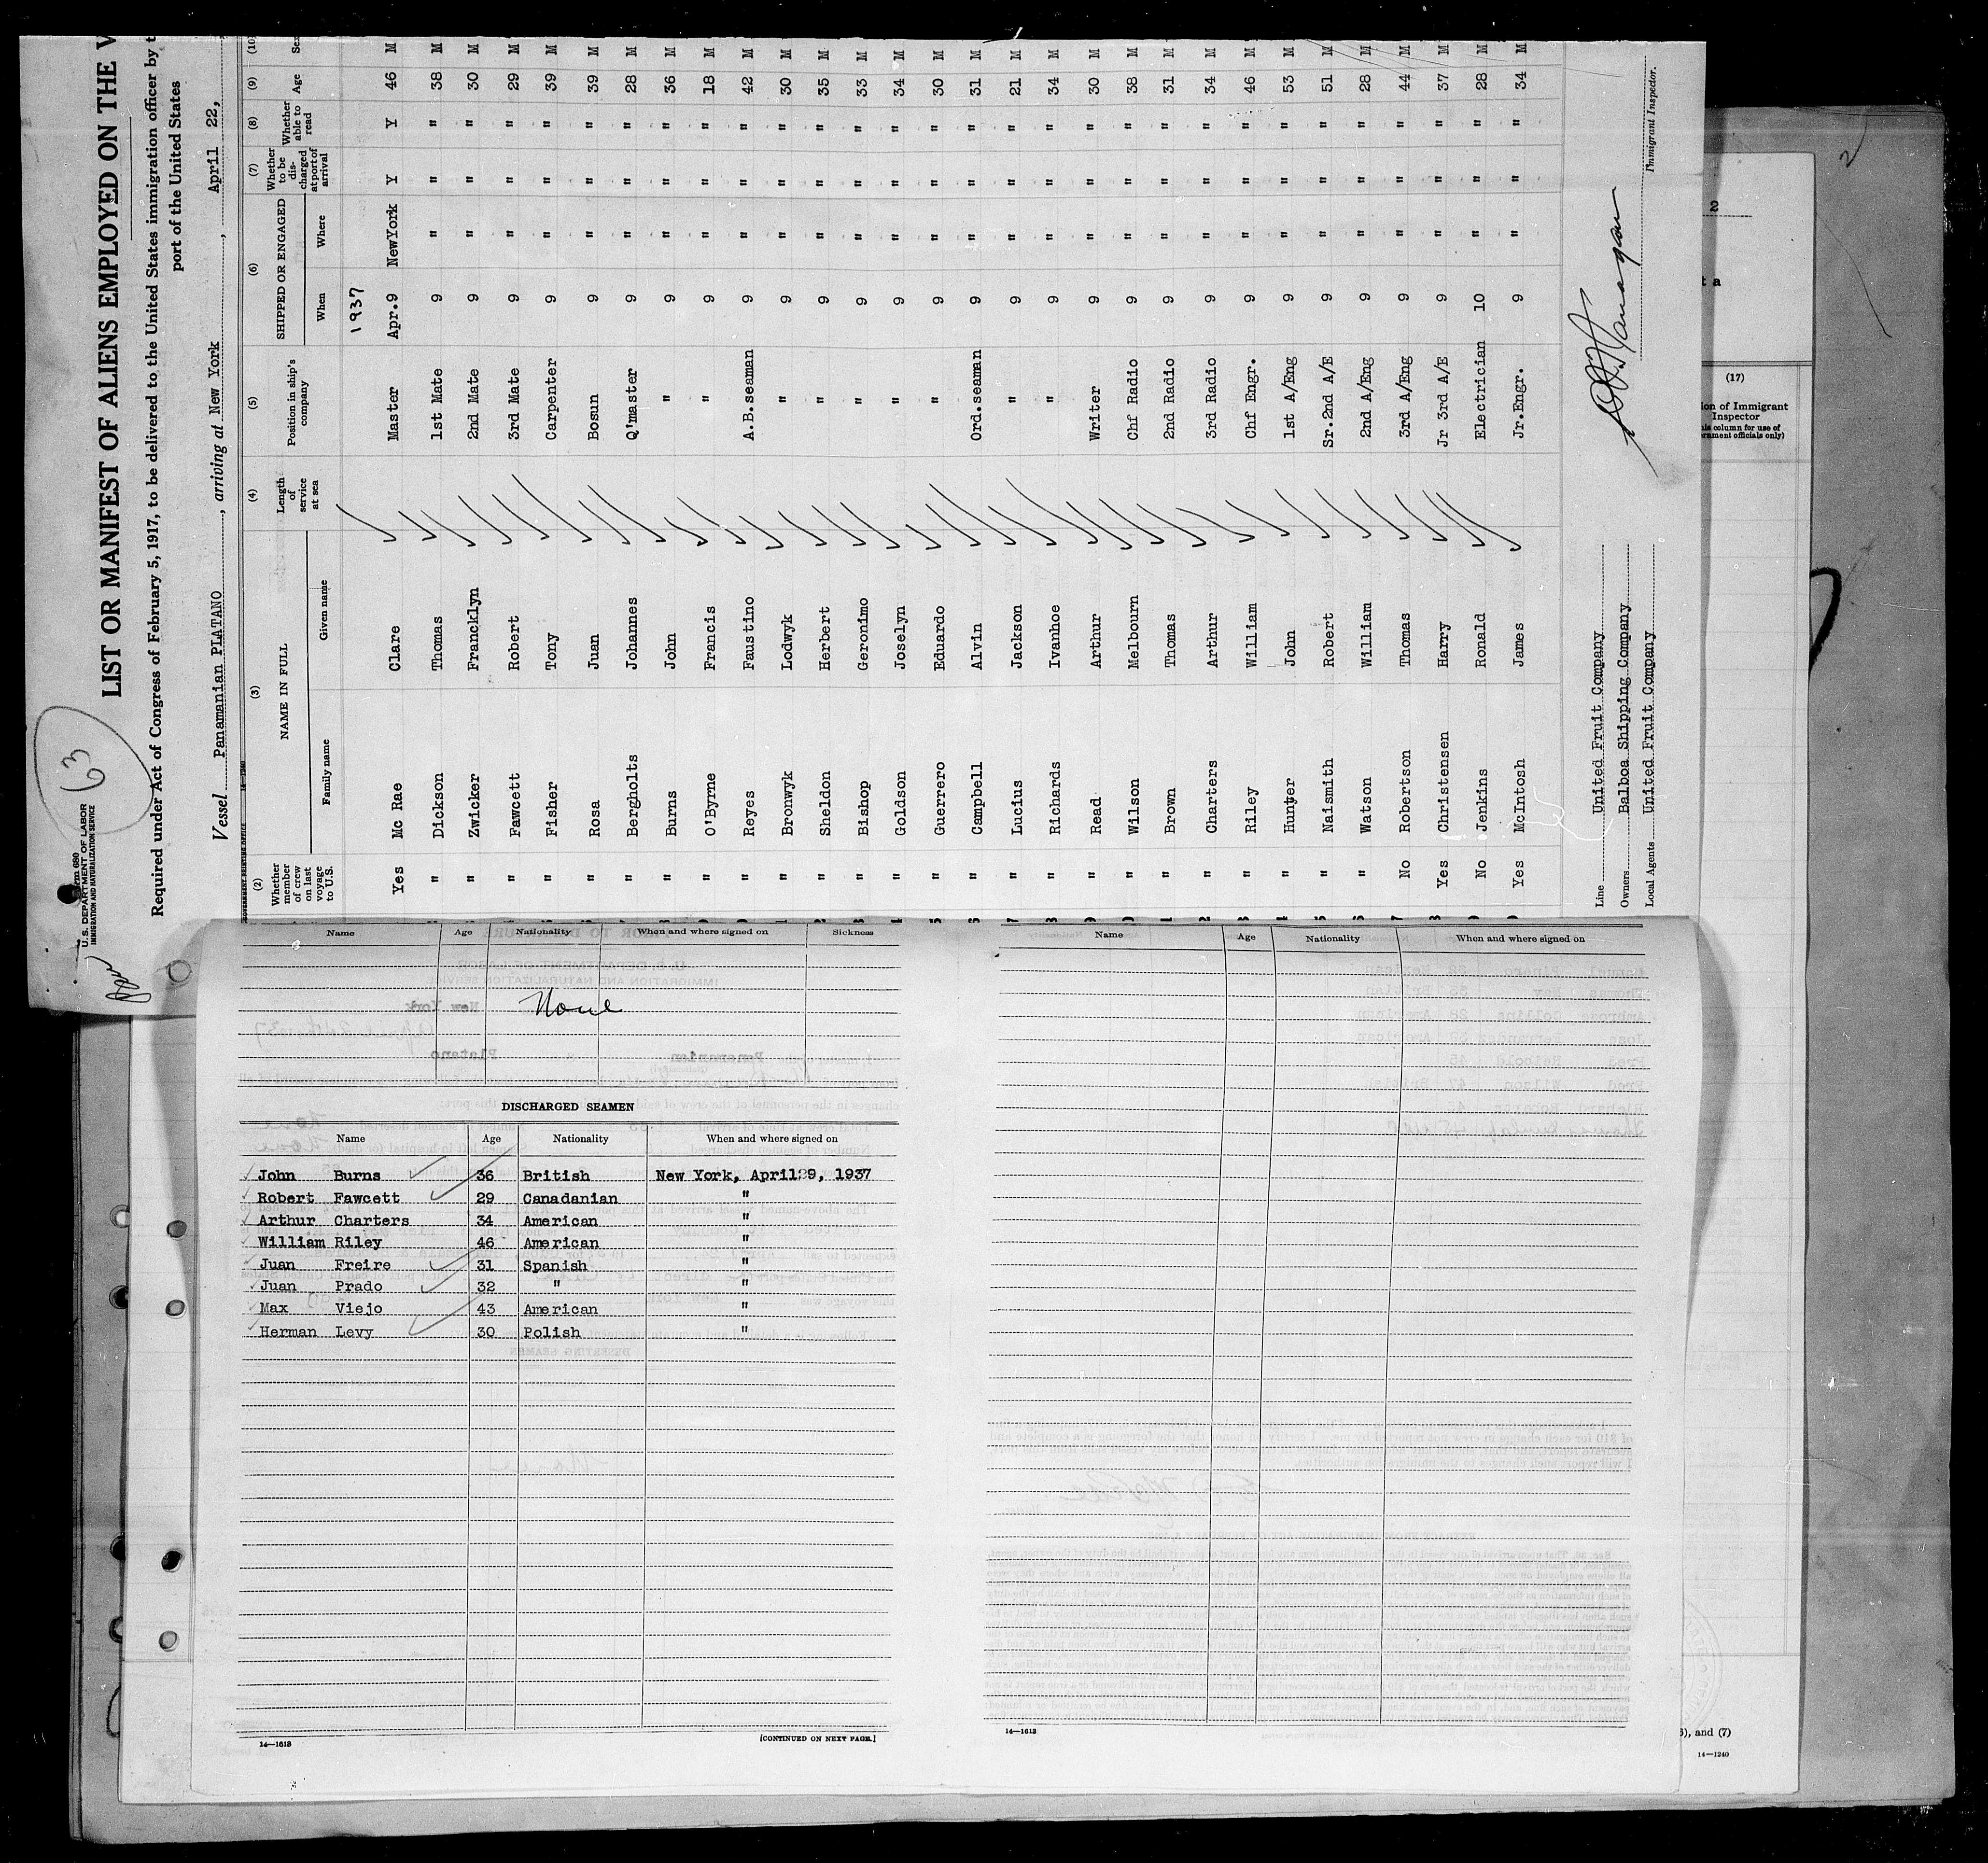 63
Form 680
U.S. DEPARTMENT OF LABOR
IMMIGRATION AND NATURALIZATION SERVICE
LIST OR MANIFEST OF ALIENS EMPLOYED ON THE V
Required under Act of Congress of February 5, 1917, to be delivered to the United States immigration officer by t
port of the United States
Vessel Panamanian PLATANO, arriving at New York, April 22,
(2) (3) (4) (5) (6) (7) (8) (9) (10)
Whether member of crew on last voyage to U.S. NAME IN FULL Family name Given name Length of service at sea Position in ship's company SHIPPED OR ENGAGED When Where Whether to be discharged at port of arrival Whether able to read Age Sex
1937
Yes Mc Rae Clare Master Apr.9 NewYork Y Y 46 M
" Dickson Thomas 1st Mate 9 " " " 38 M
" Zwicker Francklyn 2nd Mate 9 " " " 30 M
" Fawcett Robert 3rd Mate 9 " " " 29 M
" Fisher Tony Carpenter 9 " " " 39 M
" Rosa Juan Bosun 9 " " " 39 M
" Bergholts Johannes Q'master 9 " " " 28 M
" Burns John " 9 " " " 36 M
" O'Byrne Francis " 9 " " " 18 M
" Reyes Faustino A.B.seaman 9 " " " 42 M
" Bronwyk Lodwyk " 9 " " " 30 M
" Sheldon Herbert " 9 " " " 35 M
" Bishop Geronimo " 9 " " " 33 M
" Goldson Joselyn " 9 " " " 34 M
" Guerrero Eduardo " 9 " " " 30 M
" Campbell Alvin Ord.seaman 9 " " " 31 M
" Lucius Jackson " 9 " " " 21 M
" Richards Ivanhoe " 9 " " " 34 M
" Read Arthur Writer 9 " " " 30 M
" Wilson Melbourn Chf Radio 9 " " " 38 M
" Brown Thomas 2nd Radio 9 " " " 31 M
" Charters Arthur 3rd Radio 9 " " " 34 M
" Riley William Chf Engr. 9 " " " 46 M
" Hunter John 1st A/Eng 9 " " " 53 M
" Naismith Robert Sr.2nd A/E 9 " " " 51 M
" Watson William 2nd A/Eng 9 " " " 28 M
No Robertson Thomas 3rd A/Eng 9 " " " 44 M
Yes Christensen Harry Jr 3rd A/E 9 " " " 37 M
No Jenkins Ronald Electrician 10 " " " 28 M
Yes McIntosh James Jr.Engr. 9 " " " 34 M
Line United Fruit Company
Owners Balboa Shipping Company
Local Agents United Fruit Company
Immigrant Inspector.
2
2
(17)
ion of Immigrant
Inspector
(This column for use of
ernment officials only)
Name Age Nationality When and where signed on Sickness
None
DISCHARGED SEAMEN
Name Age Nationality When and where signed on
John Burns 36 British New York, April 9, 1937
Robert Fawcett 29 Canadanian "
Arthur Charters 34 American "
William Riley 46 American "
Juan Freire 31 Spanish "
Juan Prado 32 " "
Max Viejo 43 American "
Herman Levy 30 Polish "
14—1613 [CONTINUED ON NEXT PAGE.]
Name Age Nationality When and where signed on
14—1613
), and (7)
14—1240